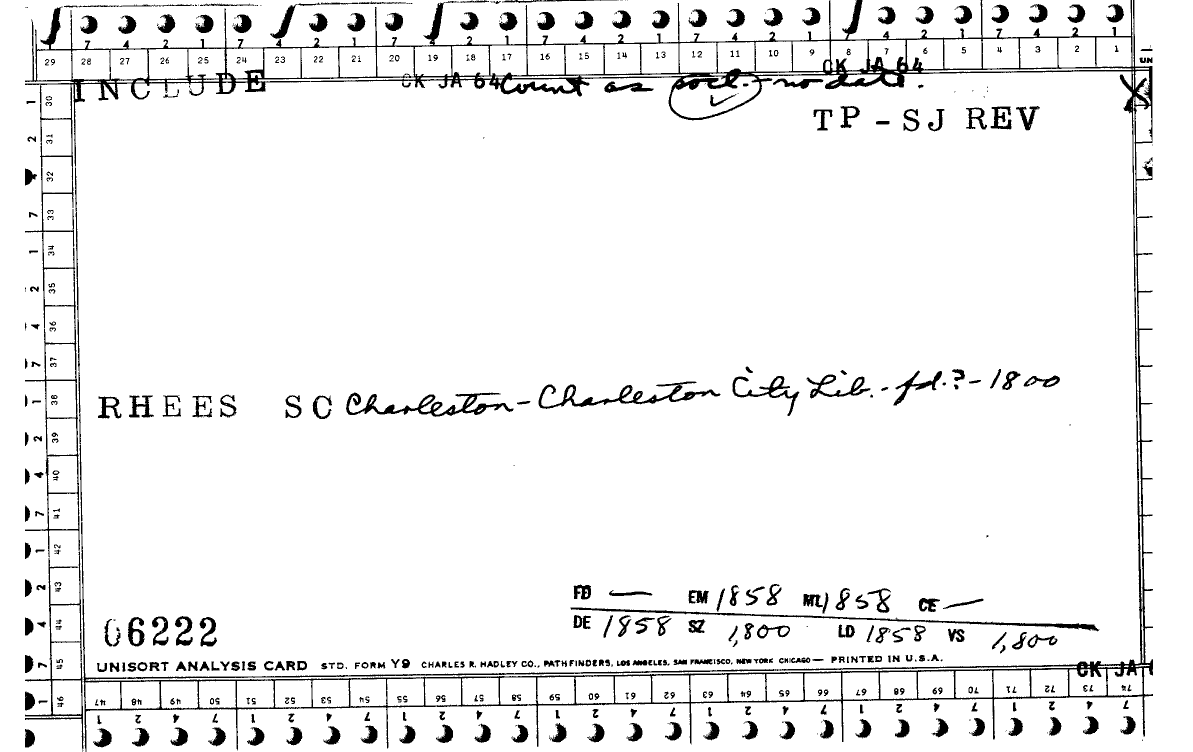 7 4 2 1 7 4 2 1 7 4 2 1 7 4 2 1 7 4 2 1 7 4 2 1 7 4 2 1
29 28 27 26 25 24 23 22 21 20 19 18 17 16 15 14 13 12 11 10 9 8 7 6 5 4 3 2 1 UN
INCLUDE CK JA 64 Count as socl. - no date. CK JA 64
TP - SJ REV
1 30
2 31
4 32
7 33
1 34
2 35
4 36
7 37
1 38
RHEES SC Charleston - Charleston City Lib. - fd.? - 1800
2 39
4 40
7 41
1 42
2 43
4 44
7 45
1 46
FD — EM 1858 ML 1858 CE —
06222 DE 1858 SZ 1,800 LD 1858 VS 1,800
UNISORT ANALYSIS CARD STD. FORM Y9 CHARLES R. HADLEY CO., PATHFINDERS, LOS ANGELES, SAN FRANCISCO, NEW YORK CHICAGO — PRINTED IN U.S.A.
CK JA
47 48 49 50 51 52 53 54 55 56 57 58 59 60 61 62 63 64 65 66 67 68 69 70 71 72 73 74
1 2 4 7 1 2 4 7 1 2 4 7 1 2 4 7 1 2 4 7 1 2 4 7 1 2 4 7